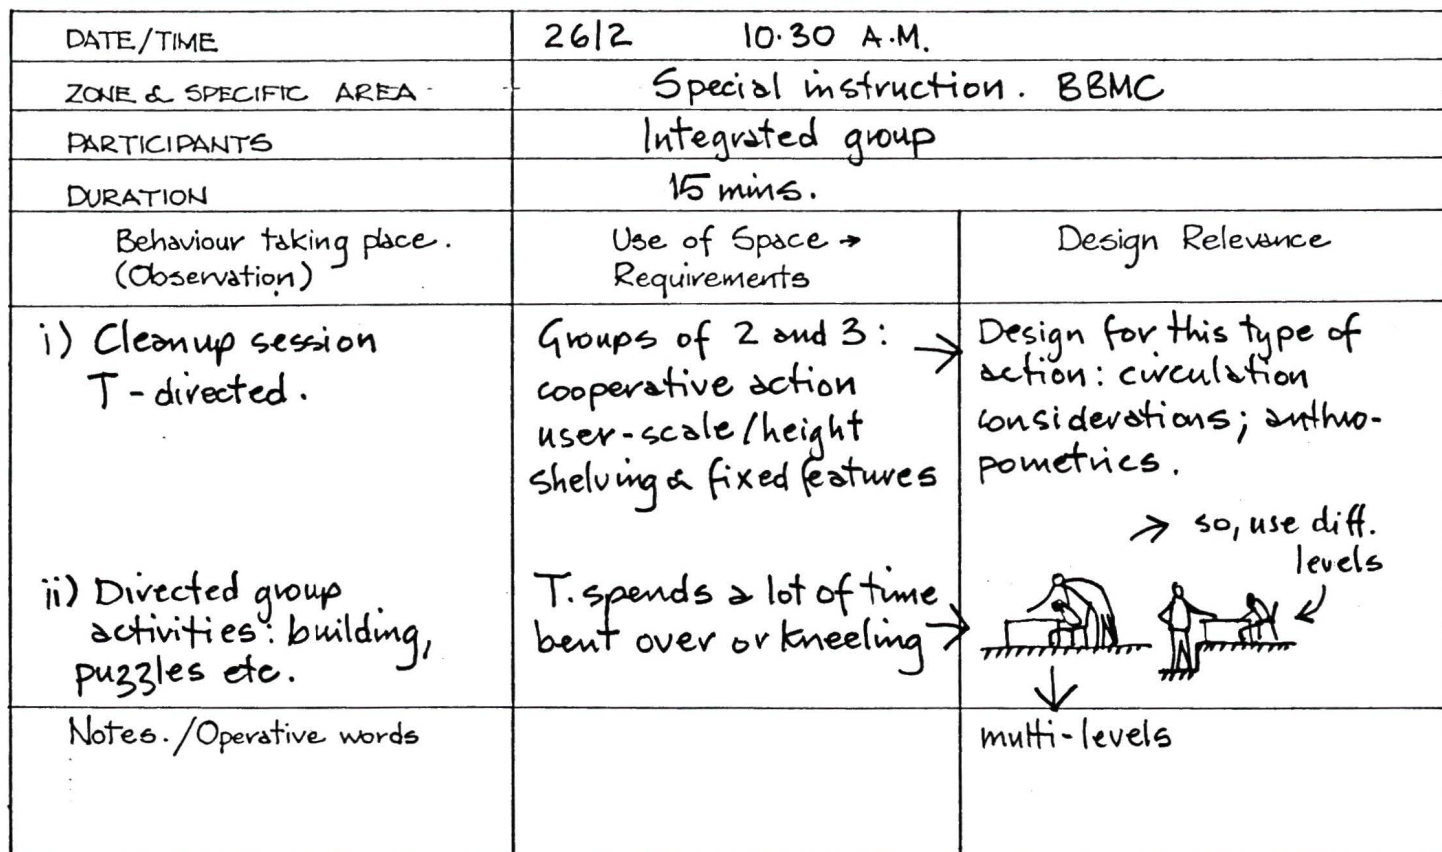 DATE/TIME 26/2 10.30 A.M.
ZONE & SPECIFIC AREA Special instruction. BBMC
PARTICIPANTS Integrated group
DURATION 15 mins.
Behaviour taking place.
(Observation)
Use of Space →
Requirements
Design Relevance
i) Cleanup session
T-directed.
Groups of 2 and 3: →
cooperative action
user-scale/height
shelving & fixed features
Design for this type of
action: circulation
considerations; anthro-
pometrics.
→ so, use diff.
levels
ii) Directed group
activities: building,
puzzles etc.
T. spends a lot of time
bent over or kneeling →
Notes./Operative words
multi-levels